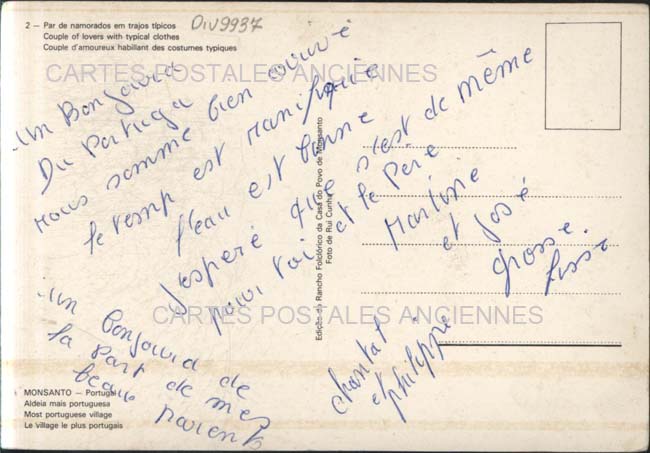 2 — Par de namorados em trajos típicos
Couple of lovers with typical clothes
Couple d'amoureux habillant des costumes typiques
Div9937
CARTES POSTALES ANCIENNES
un Bonjour
Du Portuga
nous somme bien arrivé
le temp est manifique
l'eau est bonne
j'esperé que s'est de même
pour toi et le Pere
Martine
et José
grosse
un bonjour de
la part de mes
beau parent
chantal
et philippe
CARTES POSTALES ANCIENNES
Edição do Rancho Folclórico da Casa do Povo de Monsanto
Foto de Rui Cunha
MONSANTO — Portugal
Aldeia mais portuguesa
Most portuguese village
Le village le plus portugais